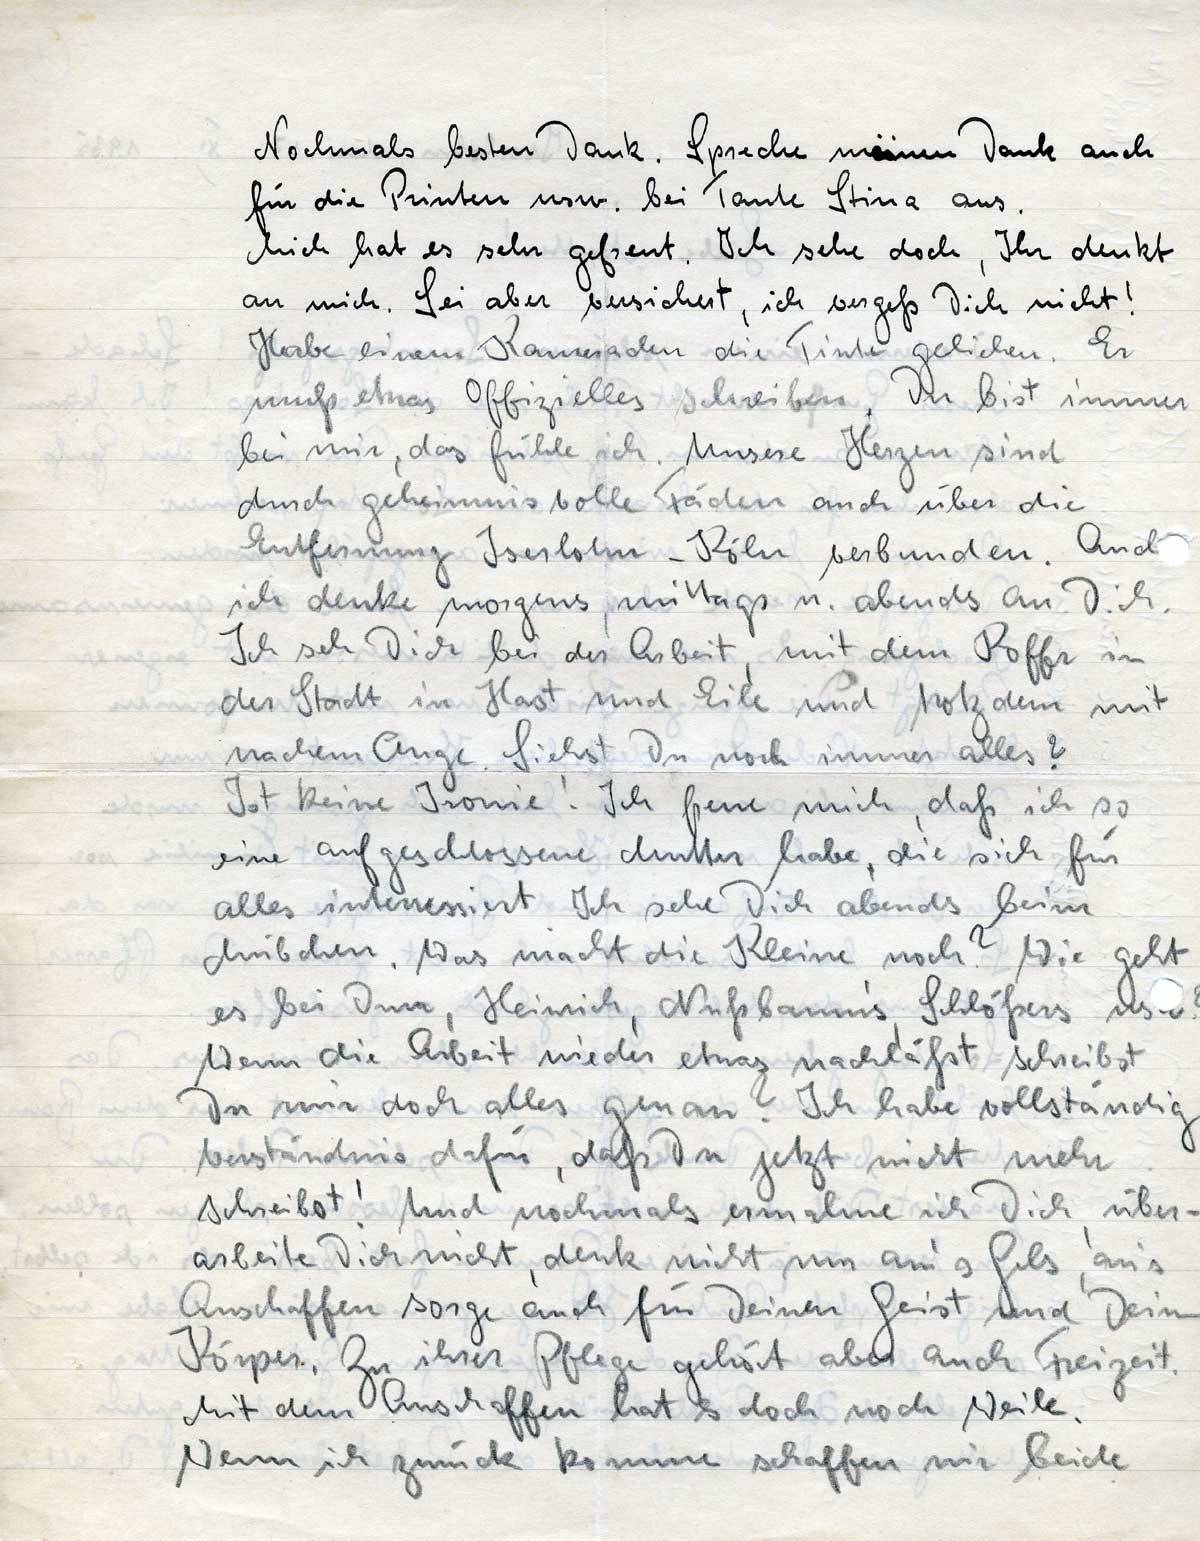 Nochmals besten Dank. Spreche meinen Dank auch
für die Printen usw. bei Tante Stina aus.
Mich hat es sehr gefreut. Ich sehe doch, Ihr denkt
an mich. Sei aber versichert, ich vergeß Dich nicht!
Habe einem Kameraden die Tinte geliehen. Er
muß etwas Offizielles schreiben. Du bist immer
bei mir, das fühle ich. Unsere Herzen sind
durch geheimnisvolle Fäden auch über die
Entfernung Iserlohn-Köln verbunden. Auch
ich denke morgens, mittags u. abends an Dich.
Ich seh Dich bei der Arbeit, mit dem Koffer in
der Stadt in Hast und Eile und trotzdem mit
wachem Auge. Siehst Du noch immer alles?
Ist keine Ironie! Ich freue mich, daß ich so
eine aufgeschlossene Mutter habe, die sich für
alles interressiert. Ich sehe Dich abends beim
Was macht die Kleine noch? Wie geht
es bei Heinrich, Nußbaum's, Schlößers usw.?
Wenn die Arbeit wieder etwas nachläßt schreibst
Du mir doch alles genau? Ich habe vollständig
Verständnis dafür, daß Du jetzt nicht mehr
schreibst! Und nochmals ermahne ich Dich, über-
arbeite Dich nicht, denk nicht nur an's an's
Anschaffen sorge auch für Deinen Geist und Dein
Körper. Zu ihrer Pflege gehört aber auch Freizeit.
Mit dem Anschaffen hat's doch noch Weile.
Wenn ich zurück komme schaffen wir beide